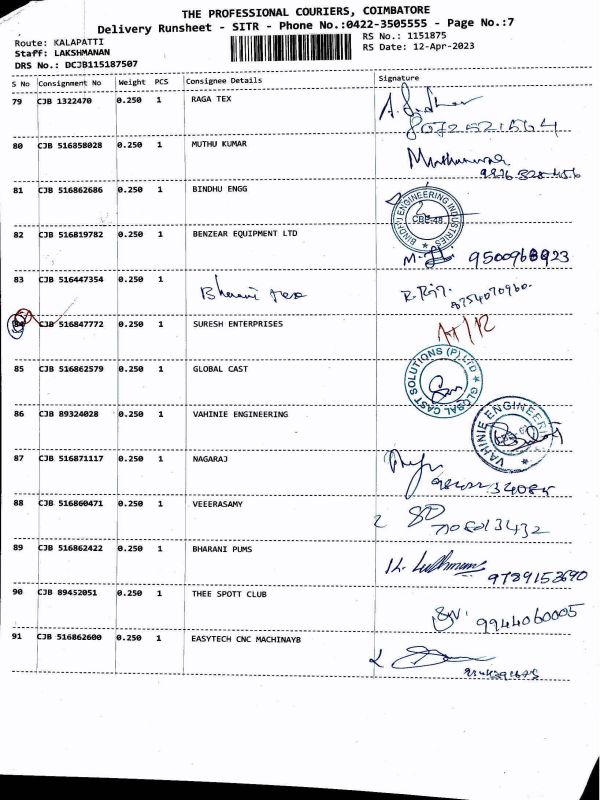 THE PROFESSIONAL COURIERS, COIMBATORE
Delivery Runsheet - SITR - Phone No.:0422-3505555 - Page No.:7
Route: KALAPATTI
RS No.: 1151875
Staff: LAKSHMANAN
RS Date: 12-Apr-2023
DRS No.: DCJB115187507
S No Consignment No Weight PCS Consignee Details Signature
79 CJB 1322470 0.250 1 RAGA TEX
80 CJB 516858028 0.250 1 MUTHU KUMAR
81 CJB 516862686 0.250 1 BINDHU ENGG
BINDHU ENGINEERING INDUSTRIES
82 CJB 516819782 0.250 1 BENZEAR EQUIPMENT LTD
83 CJB 516447354 0.250 1 Bharani Tex
8754070960
84 CJB 516847772 0.250 1 SURESH ENTERPRISES
85 CJB 516862579 0.250 1 GLOBAL CAST
GLOBAL CAST SOLUTIONS (P) LTD
86 CJB 89324028 0.250 1 VAHINIE ENGINEERING
VAHINIE ENGINEERING
87 CJB 516871117 0.250 1 NAGARAJ
88 CJB 516860471 0.250 1 VEEERASAMY
89 CJB 516862422 0.250 1 BHARANI PUMS
9789153690
90 CJB 89452051 0.250 1 THEE SPOTT CLUB
9944060005
91 CJB 516862600 0.250 1 EASYTECH CNC MACHINAYB